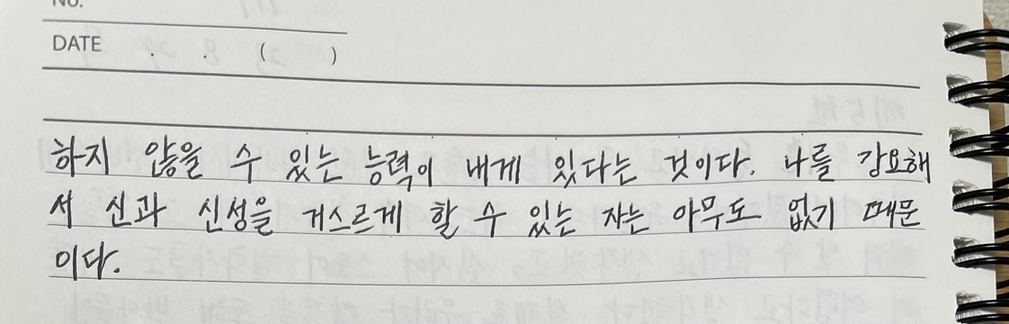 No.
DATE . . ( )
하지 않을 수 있는 능력이 내게 있다는 것이다. 나를 강요해
서 신과 신성을 거스르게 할 수 있는 자는 아무도 없기 때문
이다.